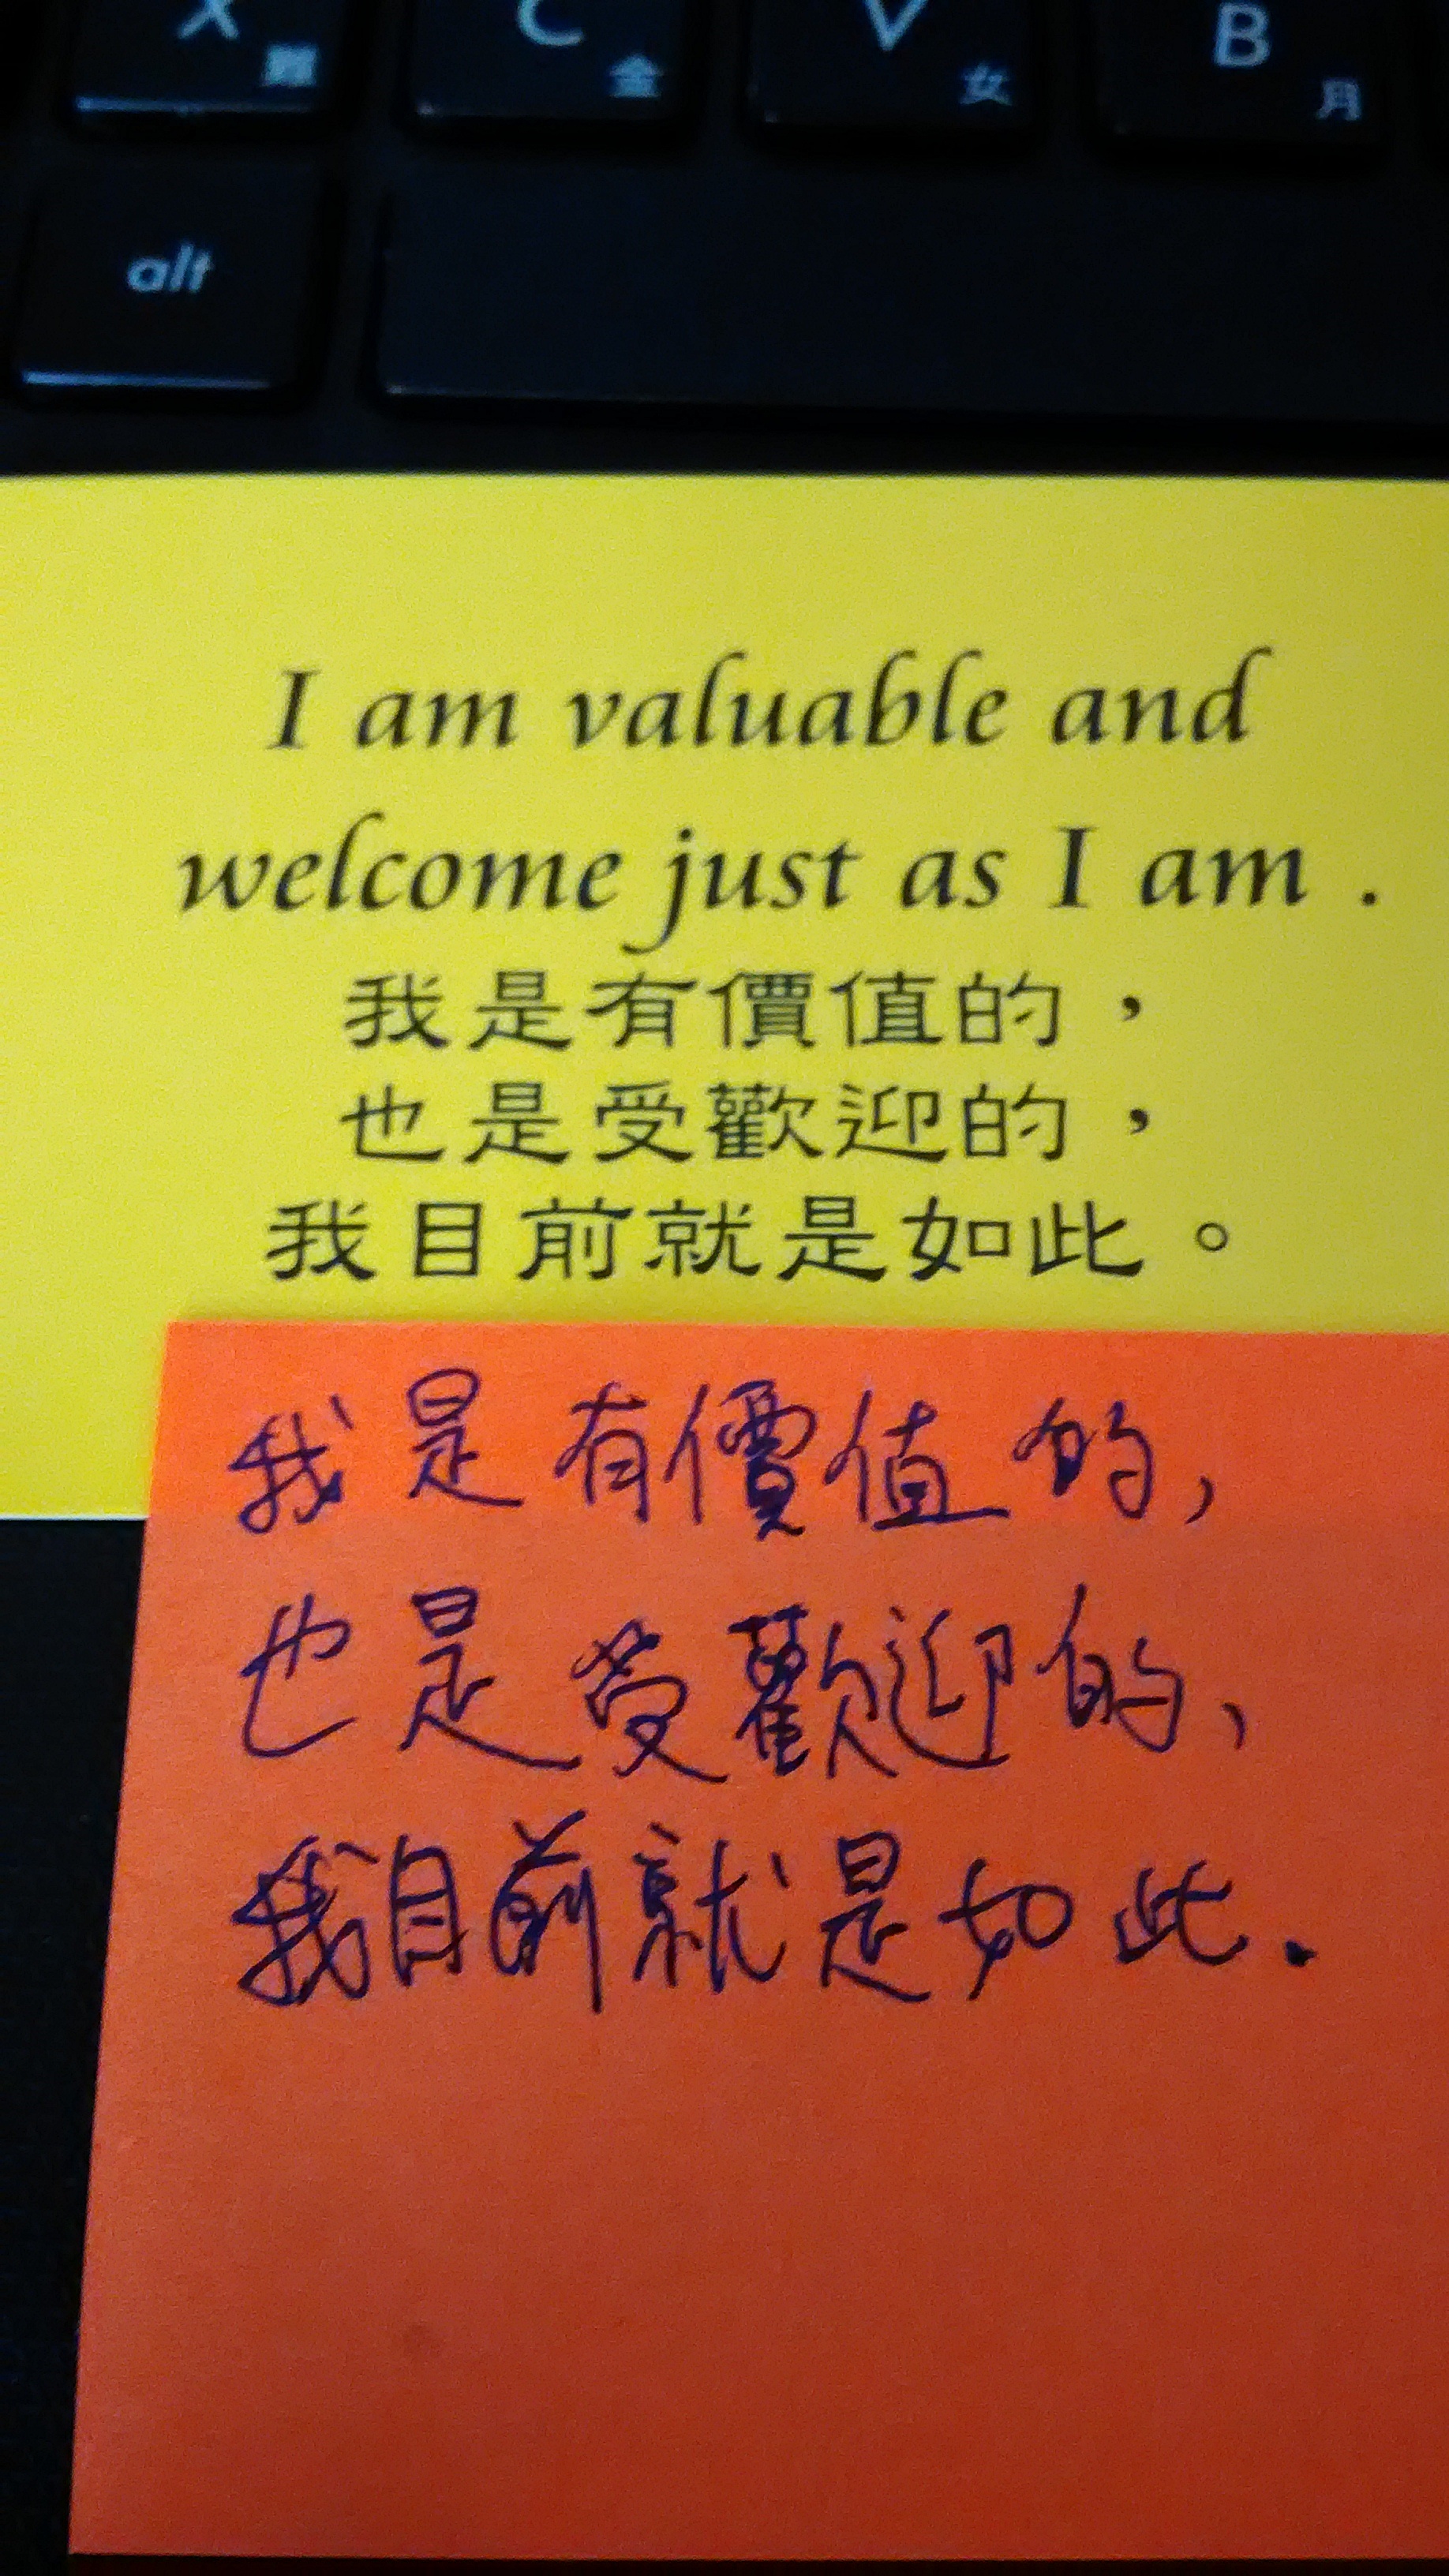 X C V B
難 金 女 月
alt
I am valuable and
welcome just as I am .
我是有價值的，
也是受歡迎的，
我目前就是如此。
我是有價值的,
也是受歡迎的、
我目前就是如此.